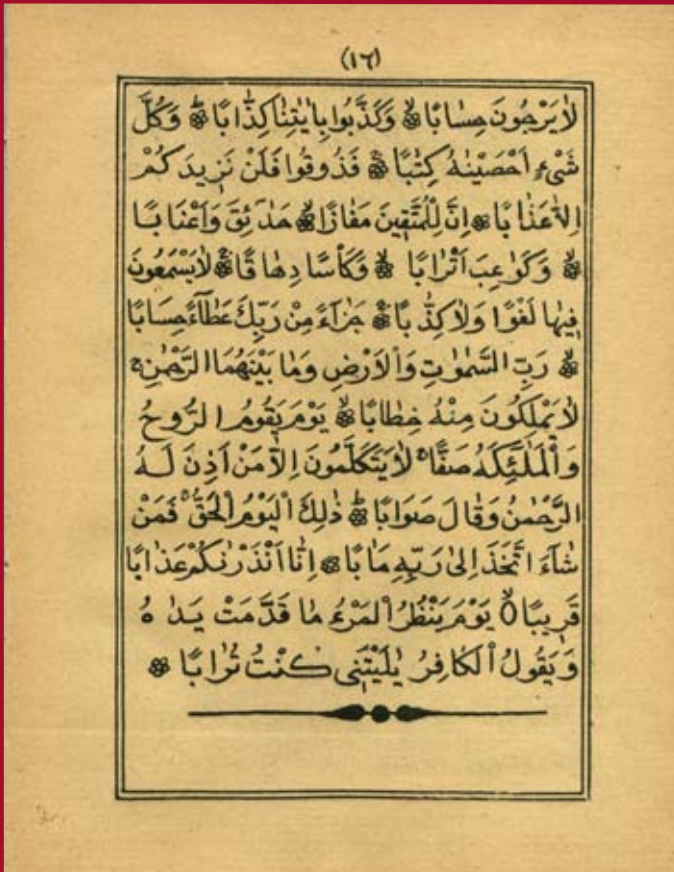 (١٦)
لَا يَرْجُونَ حِسَابًا ۞ وَكَذَّبُوا بِاٰيٰتِنَا كِذَّابًا ۞ وَكُلَّ
شَىْءٍ اَحْصَيْنٰهُ كِتٰبًا ۞ فَذُوقُوا فَلَنْ نَزِيدَكُمْ
اِلَّا عَذَابًا ۞ اِنَّ لِلْمُتَّقِينَ مَفَازًا ۞ حَدَٓائِقَ وَاَعْنَابًا
۞ وَكَوَاعِبَ اَتْرَابًا ۞ وَكَأْسًا دِهَاقًا ۞ لَا يَسْمَعُونَ
فِيهَا لَغْوًا وَلَا كِذَّابًا ۞ جَزَٓاءً مِنْ رَبِّكَ عَطَٓاءً حِسَابًا
۞ رَبِّ السَّمٰوَاتِ وَالْاَرْضِ وَمَا بَيْنَهُمَا الرَّحْمٰنِ
لَا يَمْلِكُونَ مِنْهُ خِطَابًا ۞ يَوْمَ يَقُومُ الرُّوحُ
وَالْمَلٰٓئِكَةُ صَفًّا لَا يَتَكَلَّمُونَ اِلَّا مَنْ اَذِنَ لَهُ
الرَّحْمٰنُ وَقَالَ صَوَابًا ۞ ذٰلِكَ الْيَوْمُ الْحَقُّ فَمَنْ
شَٓاءَ اتَّخَذَ اِلٰى رَبِّهِ مَاٰبًا ۞ اِنَّٓا اَنْذَرْنَاكُمْ عَذَابًا
قَرِيبًا ۝ يَوْمَ يَنْظُرُ الْمَرْءُ مَا قَدَّمَتْ يَدَاهُ
وَيَقُولُ الْكَافِرُ يٰلَيْتَنِى كُنْتُ تُرَابًا ۞